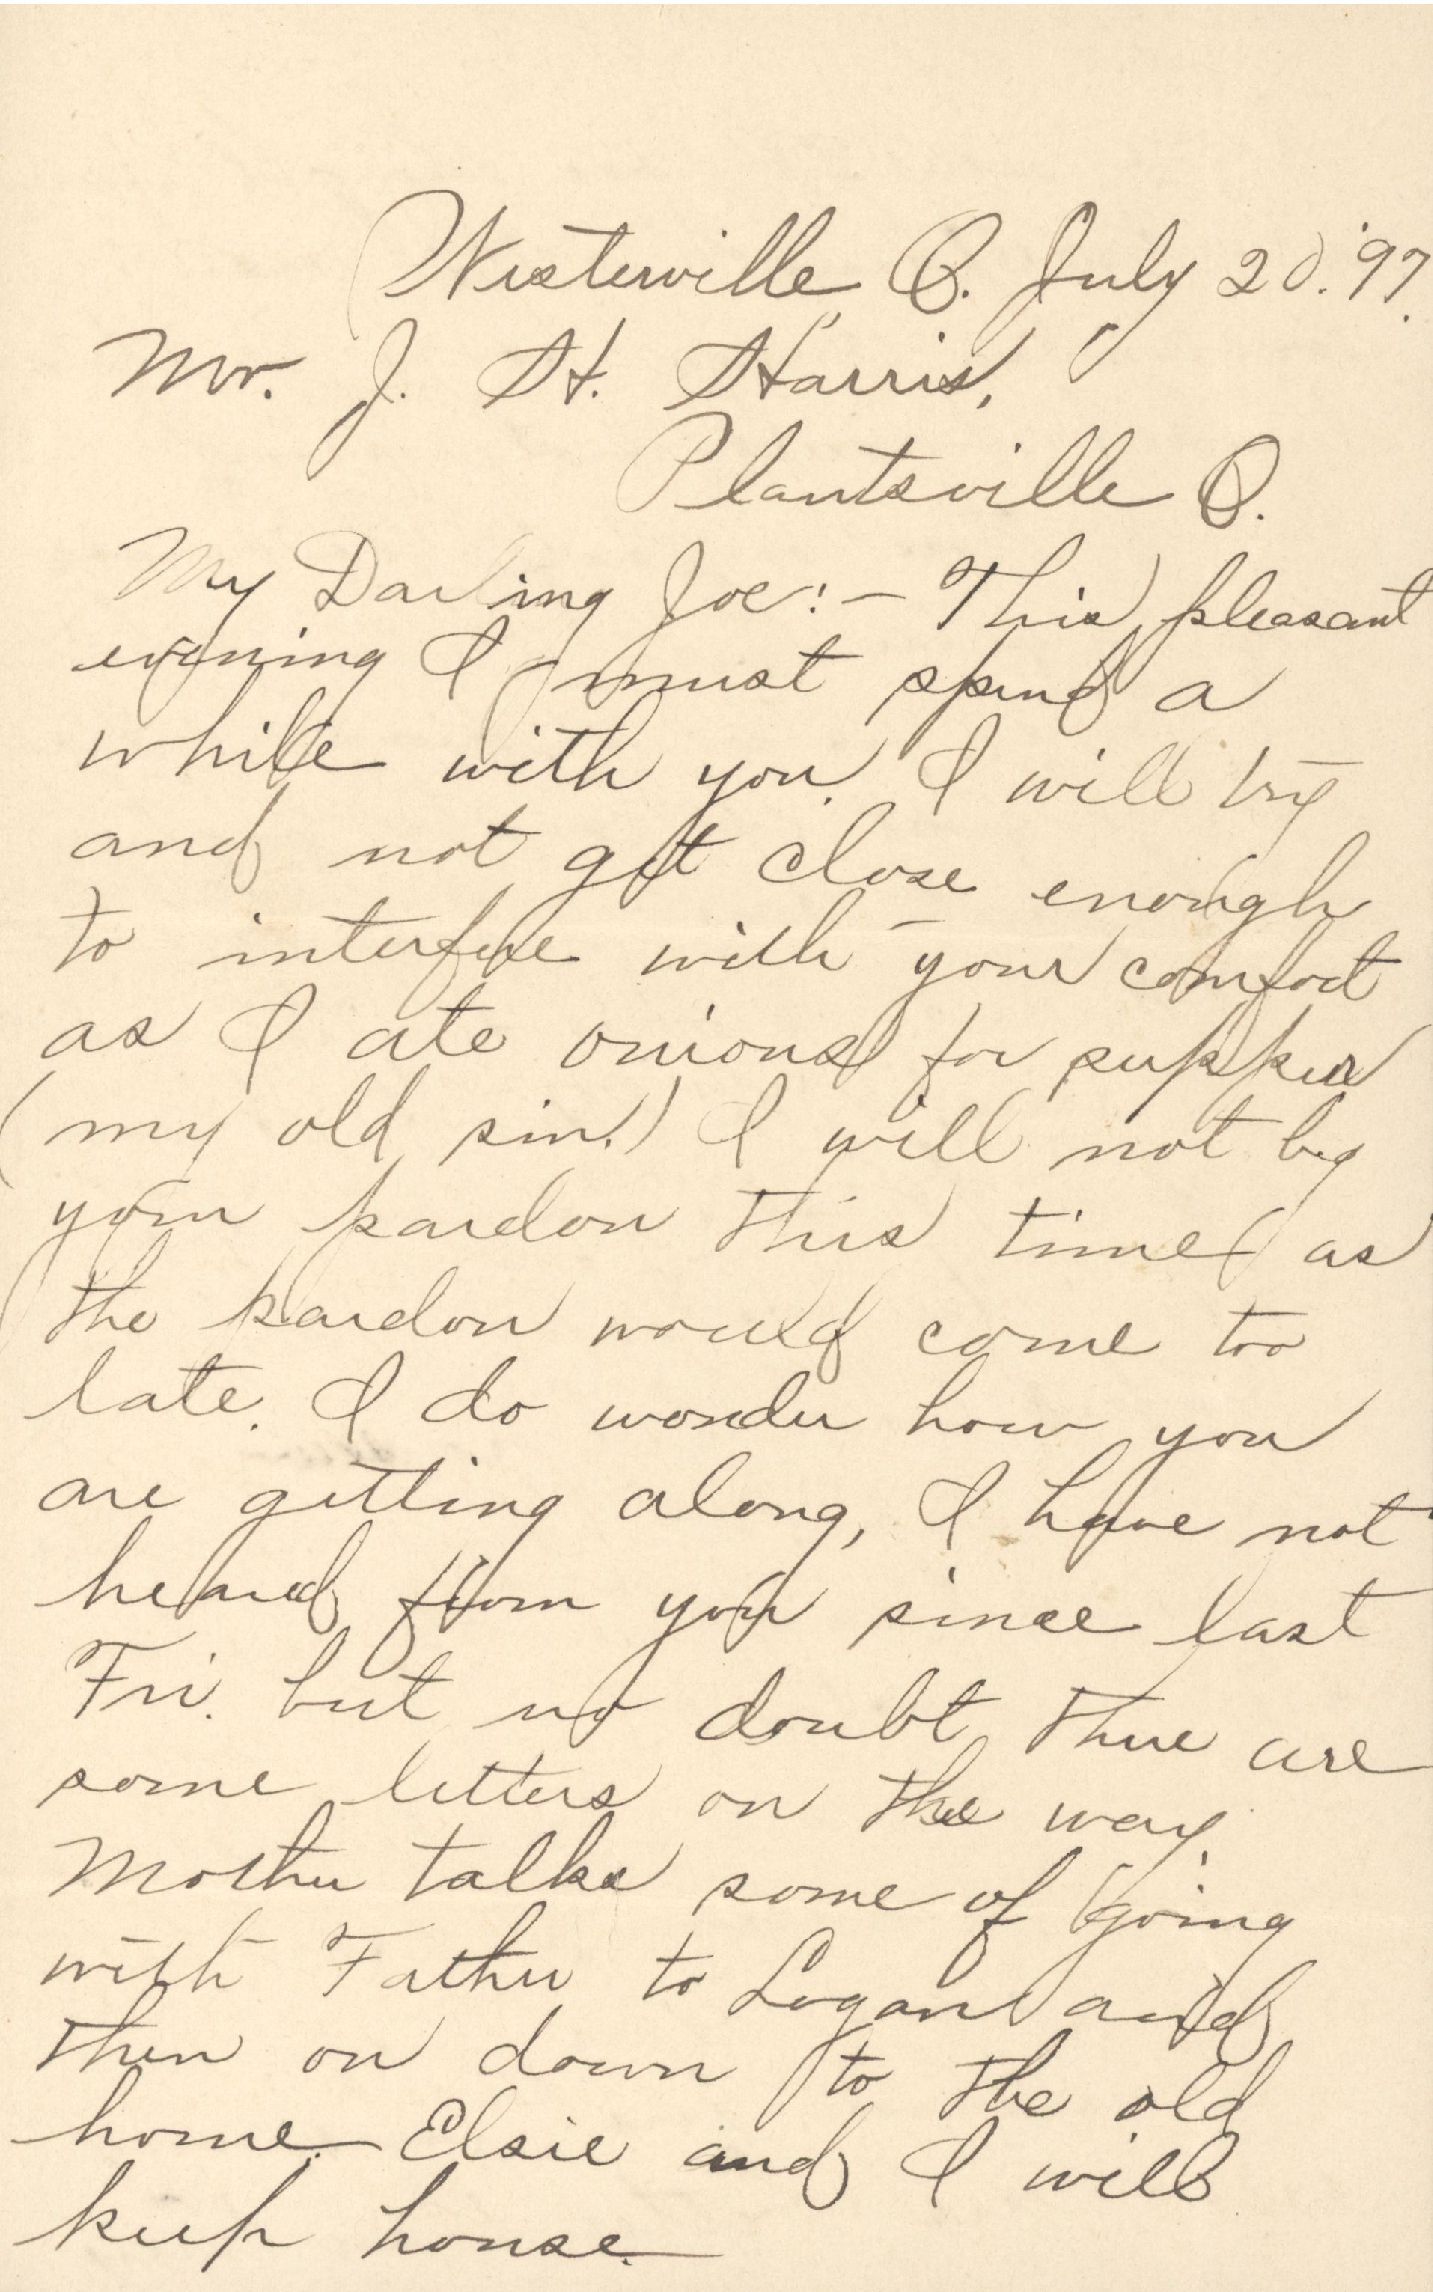 Westerville, O. July 20. '97.
Mr. J. H. Harris,
Plantsville O.
My Darling Joe:- This pleasant
evening I must spend a
while with you. I will try
and not get close enough
to interfere with your comfort
as I ate onions for supper
(my old sin.) I will not beg
your pardon this time as
the pardon would come too
late. I do wonder how you
are getting along, I have not
heard from you since last
Fri. but no doubt there are
some letters on the way.
Mother talks some of going
with Father to Logan and
then on down to the old
home. Elsie and I will
keep house.